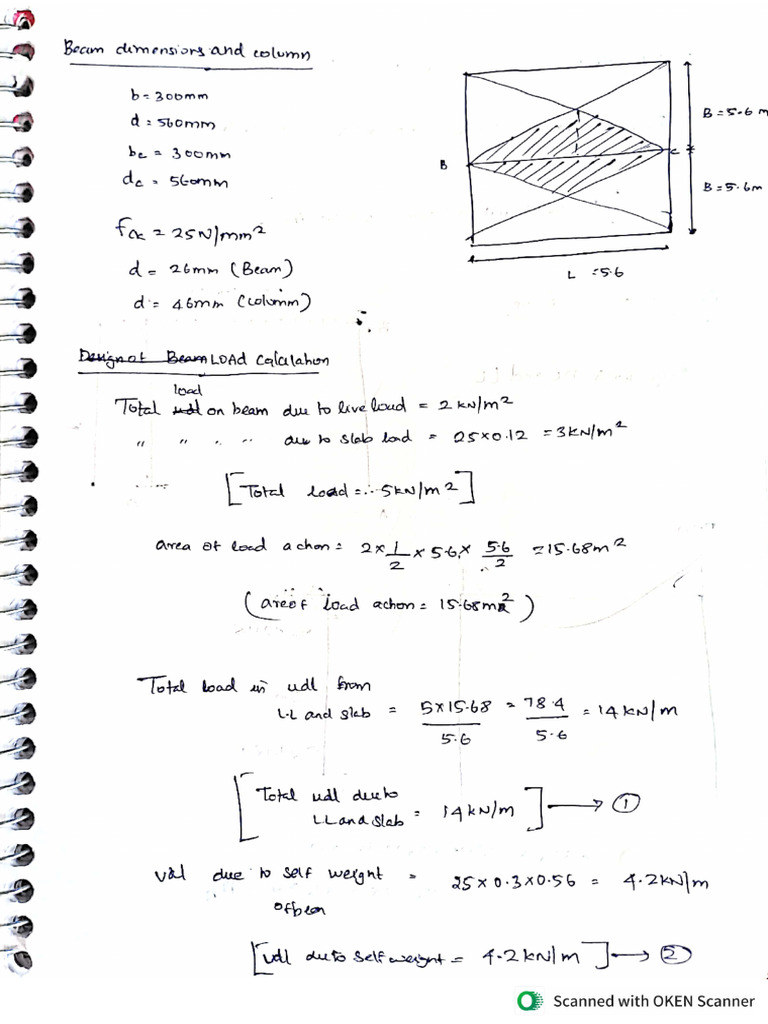 Beam dimensions and column
b = 300mm
d = 560mm
bc = 300mm
dc = 560mm
fck = 25N/mm2
d = 26mm (Beam)
d = 46mm (column)
B
C
B = 5.6 m
B = 5.6m
L = 5.6
Design of Beam LOAD Calculation
load
Total udl on beam due to live load = 2 kN/m2
" " " " due to slab load = 25×0.12 = 3kN/m2
[Total load = 5kN/m2]
area of load action = 2 × 1/2 × 5.6 × 5.6/2 = 15.68m2
(area of load action = 15.68m2)
Total load in udl from
L.L and slab = 5×15.68/5.6 = 78.4/5.6 = 14 kN/m
[Total udl due to
L.L and slab = 14kN/m] → 1
Udl due to self weight = 25×0.3×0.56 = 4.2kN/m
of beam
[udl due to self weight = 4.2kN/m] → 2
Scanned with OKEN Scanner